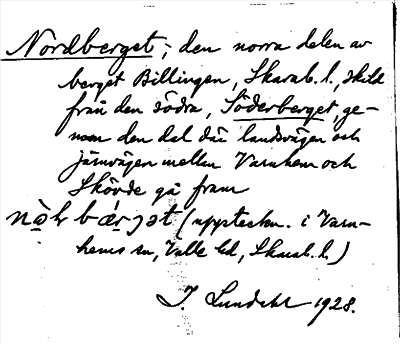 Nordberget, den norra delen av
berget Billingen, Skarab. l., skild
från den södra, Söderberget, ge-
nom den dal där landsvägen och
järnvägen mellan Varnhem och
Skövde gå fram
(uppteckn. i Varn-
hems sn, Valle hd, Skarab. l.)
J. Lundahl 1928.